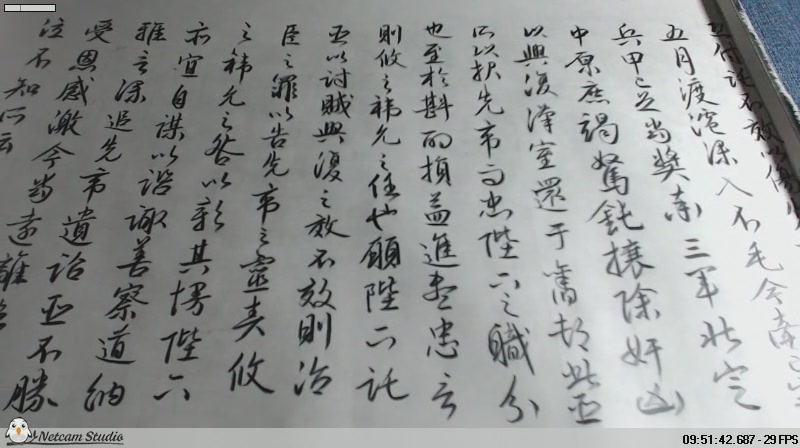 付託不效以傷
五月渡瀘深入不毛今南已定
兵甲已足當獎率三軍北定
中原庶竭駑鈍攘除奸凶
以興復漢室還于舊都此臣
所以報先帝而忠陛下之職分
也至於斟酌損益進盡忠言
則攸之禕允之任也願陛下託
臣以討賊興復之效不效則治
臣之罪以告先帝之靈責攸
之禕允之咎以彰其慢陛下
亦宜自謀以諮諏善察道納
雅言深追先帝遺詔臣不勝
受恩感激今當遠離
泣不知所云
Netcam Studio
09:51:42.687 - 29 FPS